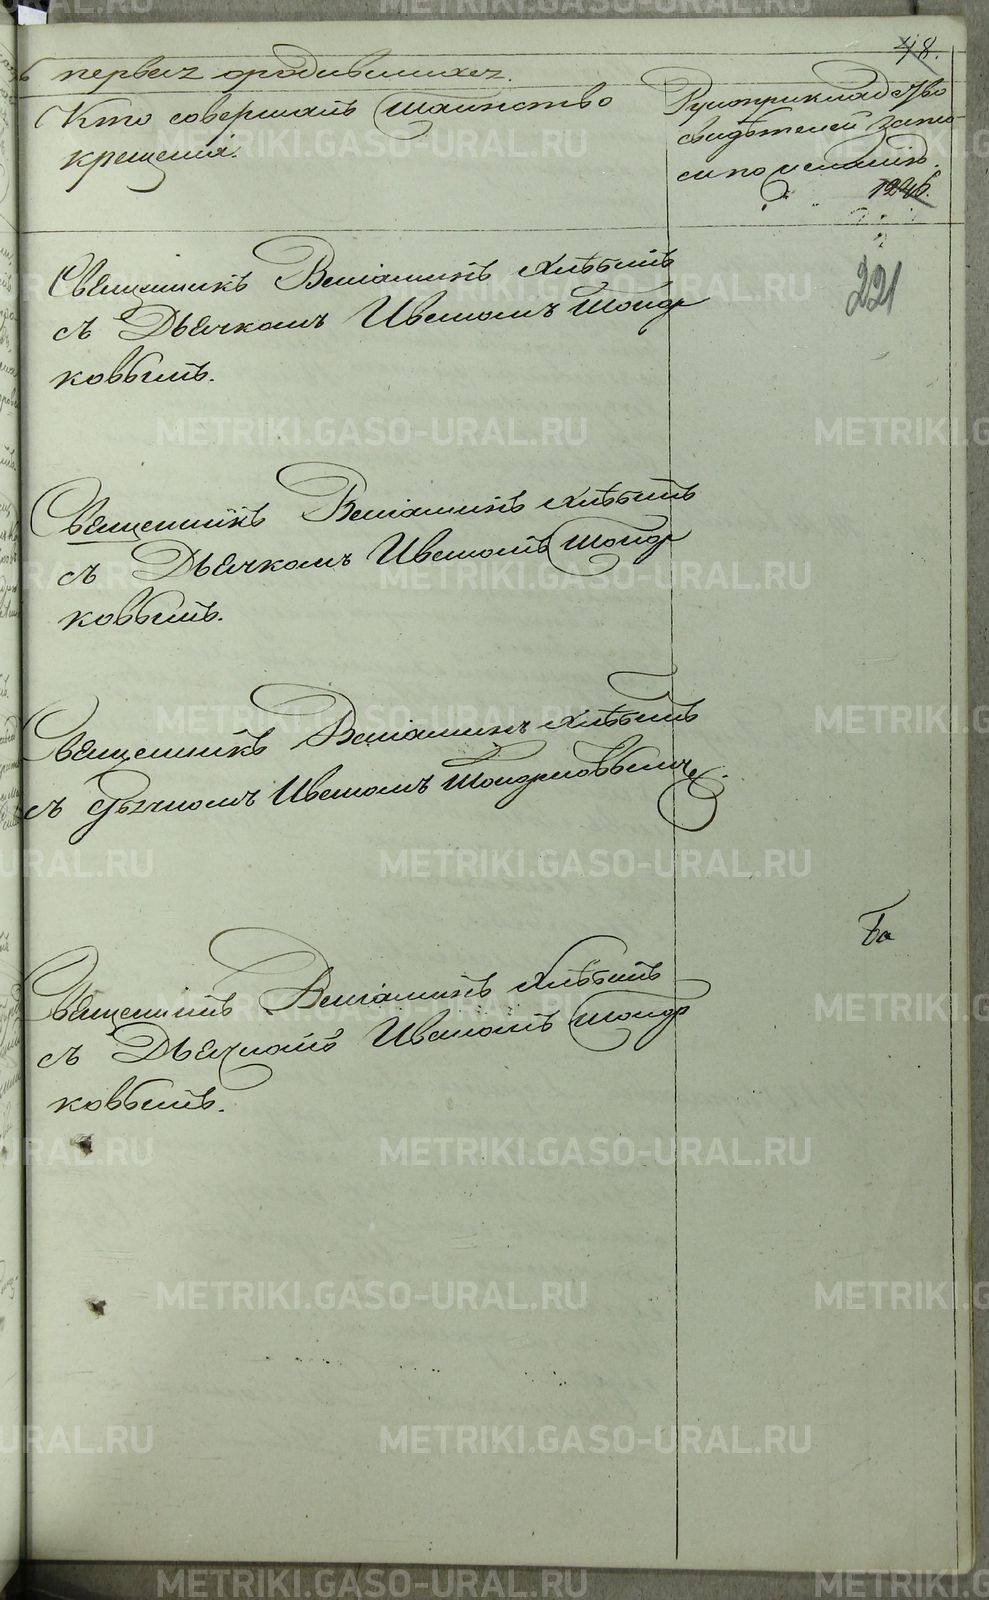 48.
первая о родившихся.
Кто совершалъ таинство
крещенія.
Рукоприкладство
свидѣтелей запи-
си по желанію.
1246.
221
Священникъ Веніаминъ Хлѣбинъ
съ Дьячкомъ Иваномъ Топор
ковымъ.
Священникъ Веніаминъ Хлѣбинъ
съ Дьячкомъ Иваномъ Топор
ковымъ.
Священникъ Веніаминъ Хлѣбинъ
съ дьячкомъ Иваномъ Топорковымъ.
Священникъ Веніаминъ Хлѣбинъ
съ Дьячкомъ Иваномъ Топор
ковымъ.
METRIKI.GASO-URAL.RU